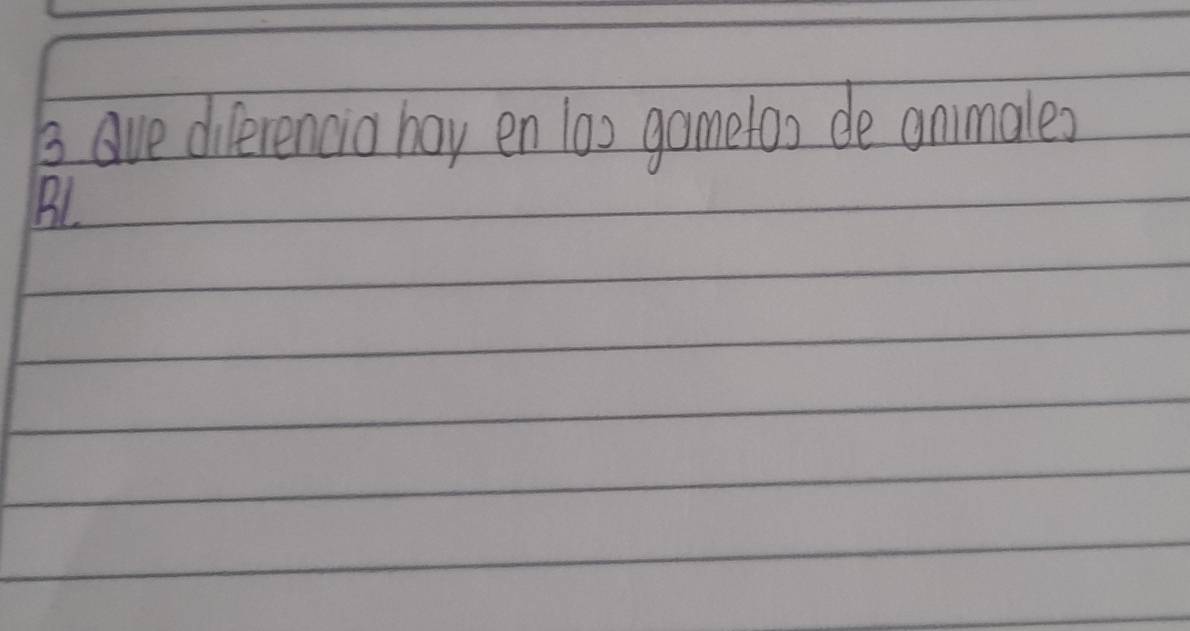 3 Que diferencia hay en los gametos de animales
BL